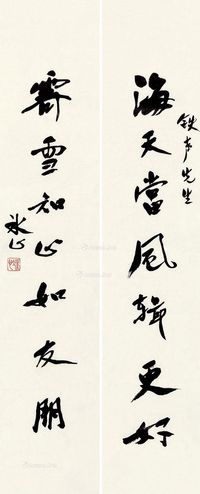 铁声先生
海天當風辑更好
霽雪知心如友朋
冰心